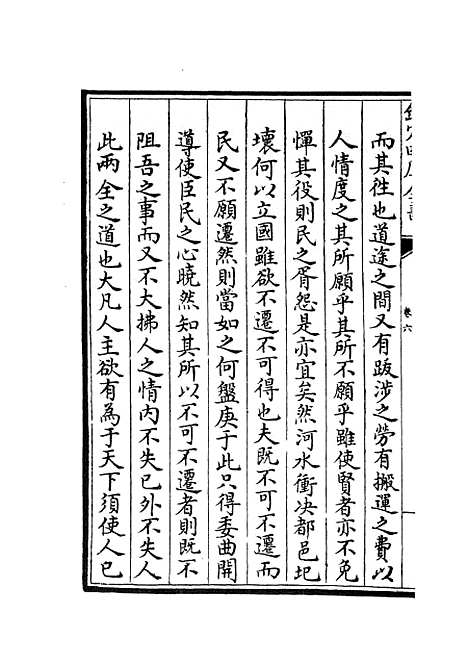 欽定四庫全書
卷六
而其徃也道途之間又有跋涉之勞有搬運之費以
人情度之其所願乎其所不願乎雖使賢者亦不免
憚其役則民之胥怨是亦宜矣然河水衝决都邑圯
壞何以立國雖欲不遷不可得也夫既不可不遷而
民又不願遷然則當如之何盤庚于此只得委曲開
導使臣民之心曉然知其所以不可不遷者則既不
阻吾之事而又不大拂人之情内不失已外不失人
此兩全之道也大凡人主欲有為于天下須使人已